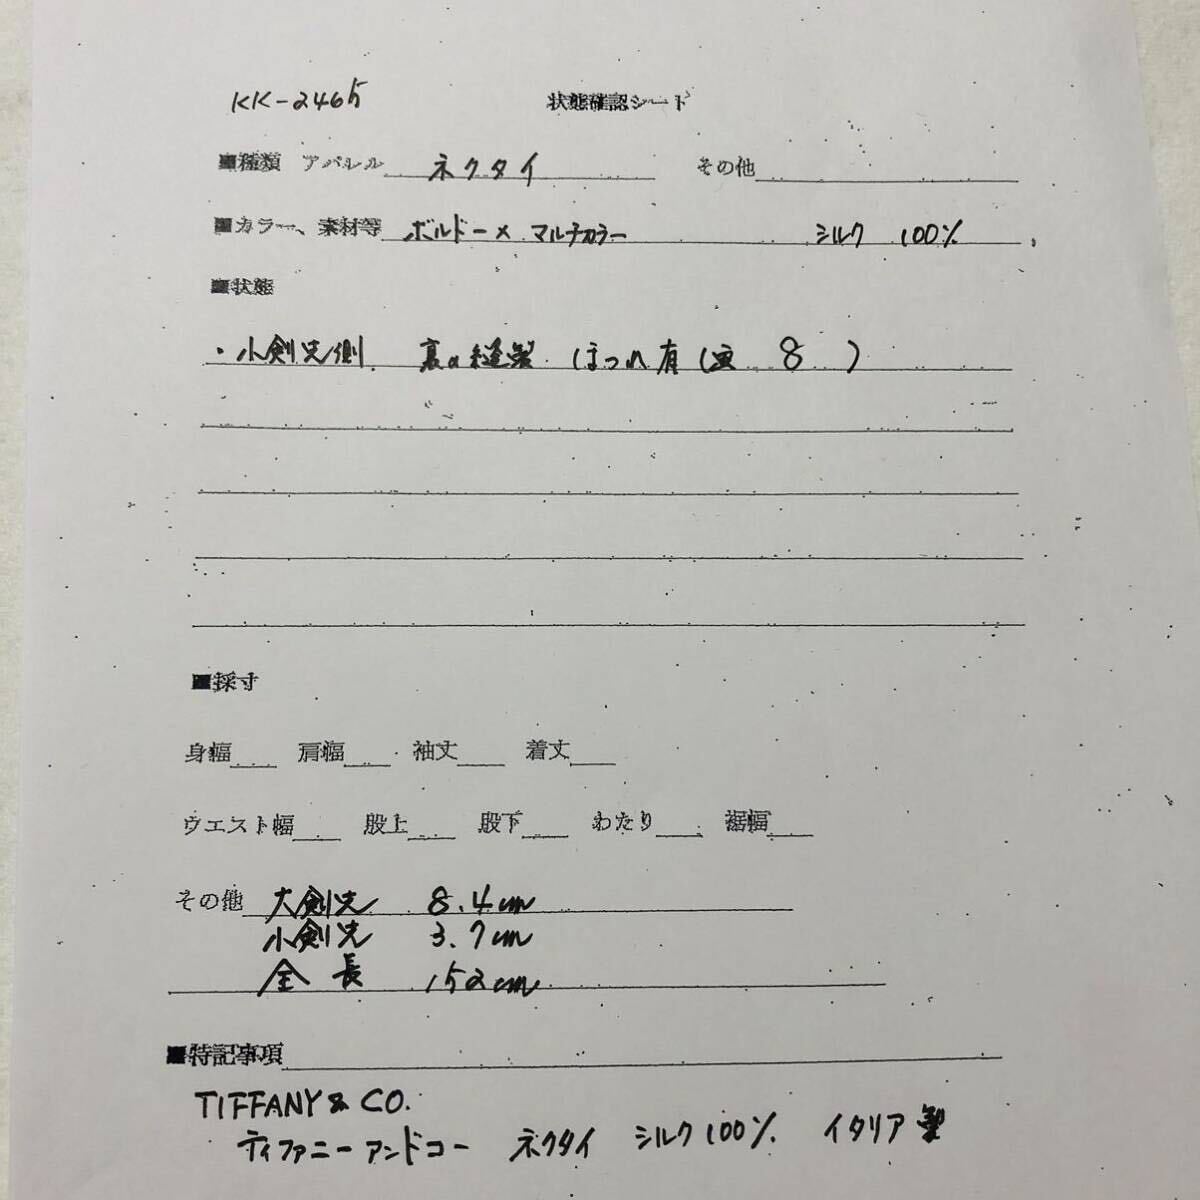 KK-2465 状態確認シート
■種類 アパレル ネクタイ その他
■カラー、素材等 ボルドー×マルチカラー シルク 100%
■状態
・小剣先側 裏の縫製 ほつれ有(画 8 )
■採寸
身幅 肩幅 袖丈 着丈
ウエスト幅 股上 股下 わたり 裾幅
その他 大剣先 8.4cm
小剣先 3.7cm
全長 152cm
■特記事項
TIFFANY & CO.
ティファニーアンドコー ネクタイ シルク100% イタリア製